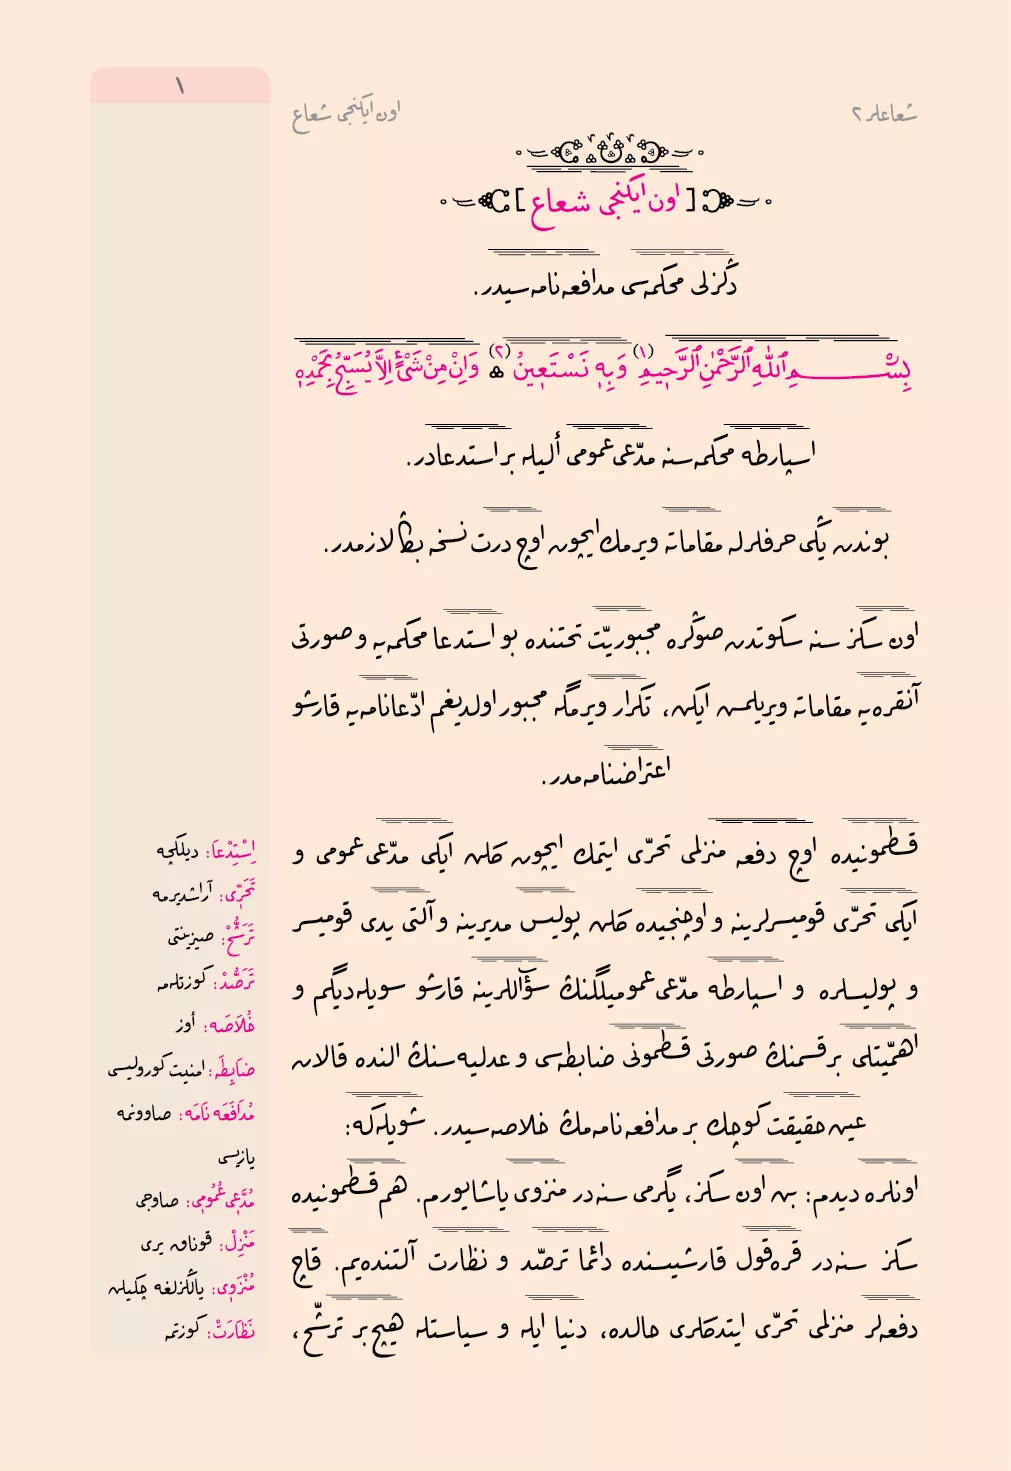 ١
شعاعلر ٢
اون ایکنجی شعاع
[اون ایکنجی شعاع]
دڭزلی محکمه‌سی مدافعه‌نامه‌سیدر.
بِسْمِ ٱللّٰهِ ٱلرَّحْمٰنِ ٱلرَّح۪يمِ (١) وَبِه۪ نَسْتَع۪ينُ (٢) ﻫ وَاِنْ مِنْ شَیْءٍ اِلَّا يُسَبِّحُ بِحَمْدِه۪
اسپارطه محکمه‌سنه مدّعی‌عمومی ألیله بر استدعادر.
بوندن یڭی حرفلرله مقاماته ویرمك ایچون اوچ درت نسخه بڭا لازمدر.
اون سکز سنه سکوتدن صوڭره مجبوریّت تحتنده بو استدعا محکمه‌یه و صورتی
آنقره‌یه مقاماته ویریلمس ایکن، تکرار ویرمگه مجبور اولدیغم ادّعانامه‌یه قارشو
اعتراضنامه‌مدر.
قسطمونیده اوچ دفعه منزلمی تحرّی ایتمك ایچون کلن ایکی مدّعی‌عمومی و
ایکی تحرّی قومیسرلرینه و اوچنجیده کلن پولیس مدیرینه و آلتی یدی قومیسر
و پولیسلره و اسپارطه مدّعی‌عمومیلگنڭ سؤآللرینه قارشو سویله‌دیگم و
اهمّیتلی بر قسمنڭ صورتی قسطمونی ضابطه‌سی و عدلیه‌سنڭ النده قالان
عین حقیقت کوچك بر مدافعه‌نامه‌مڭ خلاصه‌سیدر. شویله‌که:
اونلره دیدم: بن اون سکز، یگرمی سنه‌در منزوی یاشایورم. هم قسطمونیده
سکز سنه‌در قره‌قول قارشیسنده دائما ترصّد و نظارت آلتنده‌یم. قاچ
دفعه‌لر منزلمی تحرّی ایتدکلری حالده، دنیا ایله و سیاستله هیچ بر ترشّح،
اِسْتِدْعَا: دیلکچه
تَحَرّ۪ی: آراشدیرمه
تَرَشُّحْ: صیزینتی
تَرَصُّدْ: کوزتله‌مه
خُلَاصَه: أوز
ضَابِطَه: امنیت کورولیسی
مُدَافَعَه‌نَامَه: صاوونمه
یازیسی
مُدَّعِی‌عُمُوم۪ی: صاوجی
مَنْزِلْ: قوناق یری
مُنْزَو۪ی: یاڭلزلغه چکیلن
نَظَارَتْ: کوزتمه